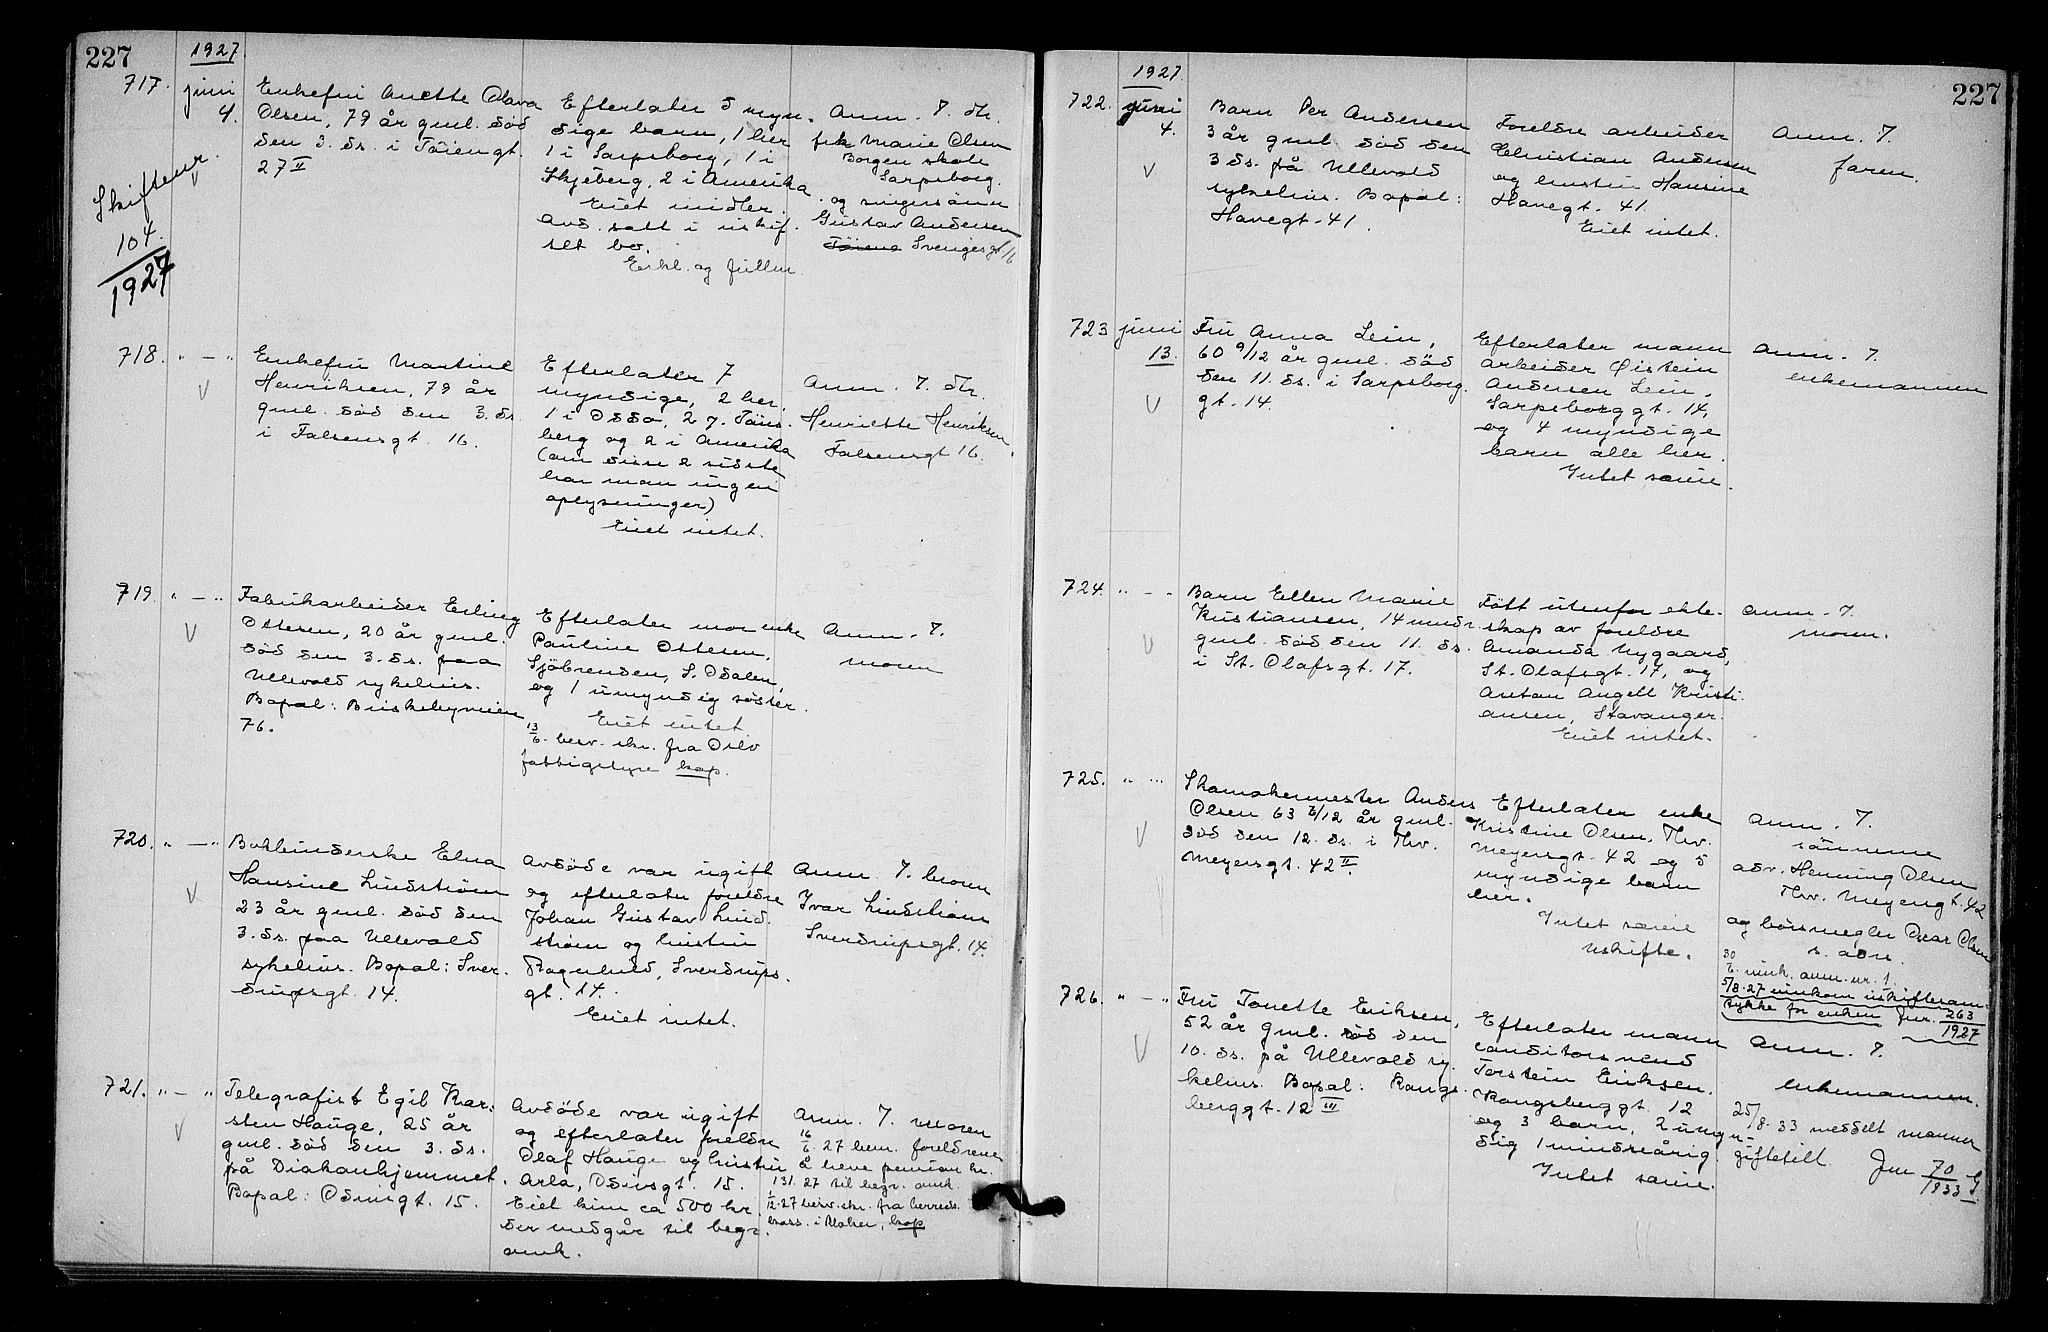 227
1927.
717.
juni
4.
Enkefru Anette Olava
Olsen, 79 år gml. död
den 3. ds. i Töiengt.
27 II
Efterlater 5 myn-
dige barn, 1 her
1 i Sarpsborg, 1 i
Skjeberg, 2 i Amerika
Eiet midler.
Avd. satt i uskif-
tet bo.
Erkl. og fullm.
Anm. 7. dtr.
frk Marie Olsen
Borgen skole
Sarpsborg.
og svigersönn
Gustav Andersen
Töieng Sveinsgt. 16
Skiftenr.
104.
1927
718. " — "
Enkefru Martine
Henriksen, 79 år
gml. död den 3. ds.
i Falsensgt. 16.
Efterlater 7
myndige, 2 her.
1 i Odda, 2 i Töns-
berg og 2 i Amerika
(om disse 2 sidste
har man ingen
oplysninger)
Eiet intet.
Anm. 7. dtr.
Henriette Henriksen,
Falsensgt 16.
719. " — "
Fabrikarbeider Erling
Ottesen, 20 år gml.
död den 3. ds. paa
Ullevold sykehus.
Bopal: Briskebyveien
76.
Efterlater mor enke
Pauline Ottesen,
Sjöbrenden, S. Odalen,
og 1 umyndig söster.
Eiet intet
13/6. besv. skr. fra Oslo
fattigstyre kop.
Anm. 7.
moren
720. " — "
Bokbinderske Elna
Hansine Lindström
23 år gml. död den
3. ds. paa Ullevold
sykehus. Bopal: Sver-
drupsgt. 14.
Avdöde var ugift
og efterlater foreldre
Johan Gustav Lind-
ström og hustru
Ragnhild, Sverdrups-
gt. 14.
Eiet intet.
Anm. 7. broren
Ivar Lindström
Sverdrupsgt. 14.
721. " — "
Telegrafist Egil Kar-
sten Hauge, 25 år
gml. död den 3. ds.
på Diakonhjemmet.
Bopal: Odinsgt. 15.
Avdöde var ugift
og efterlater foreldre
Olaf Hauge og hustru
Arla, Odinsgt. 15.
Eiet kun ca 500 kr.
der medgår til begr.
omk.
Anm. 7. moren
16/6. 27 bem. foreldrene
å heve pension kr.
131.27 til begr. omk.
27 besv. skr. fra herreds-
kass. i Aker, kop
227
1927.
722.
juni
4.
Barn Per Andersen
3 år gml. död den
3 ds. på Ullevold
sykehus. Bopal:
Havegt. 41.
Foreldre arbeider
Christian Andersen
og hustru Hansine
Havegt. 41.
Eiet intet.
Anm. 7.
faren.
723
juni
13.
Fru Anna Lein,
60 9/12 år gml. död
den 11. ds. i Sarpsborg-
gt. 14.
Efterlater mann
arbeider Øistein
Andersen Lein,
Sarpsborggt. 14,
og 4 myndige
barn alle her.
Intet særeie.
Anm. 7.
enkemannen
724. " — "
Barn Ellen Marie
Kristiansen, 14 mndr.
gml. död den 11. ds.
i St. Olafsgt. 17.
Født utenfor ekte-
skap av foreldre
Amanda Nygaard,
St. Olafsgt. 17, og
Anton Angell Kristi-
ansen, Stavanger.
Eiet intet.
Anm. 7.
moren.
725. " — "
Skomakermester Anders
Olsen 63 /12 år gml.
död den 12. ds. i Thv.
Meyersgt. 42 II.
Efterlater enke
Kristine Olsen, Thv.
Meyersgt. 42 og 5
myndige barn
her.
Intet særeie
Uskifte.
Anm. 7.
sönnene
adv. Henning Olsen
Thv. Meyersgt. 42
og börsmegler Oscar Olsen
s. adr.
30/6. innk. anm. nr. 1.
5/8.27 innkom uskifteram.
stykke for enken Jnr. 263/1927
726. " — "
Fru Tonette Eriksen,
52 år gml. död den
10. ds. på Ullevold sy-
kehus. Bopal: Kongs-
berggt. 12 III
Efterlater mann
konditorsvend
Torstein Eriksen.
Kongsberggt. 12
og 3 barn, 2 umyn-
dig 1 mindreårig.
Intet særeie.
Anm. 7.
enkemannen.
25/8. 33 meddelt mannen
giftetill. Jnr 70/1933